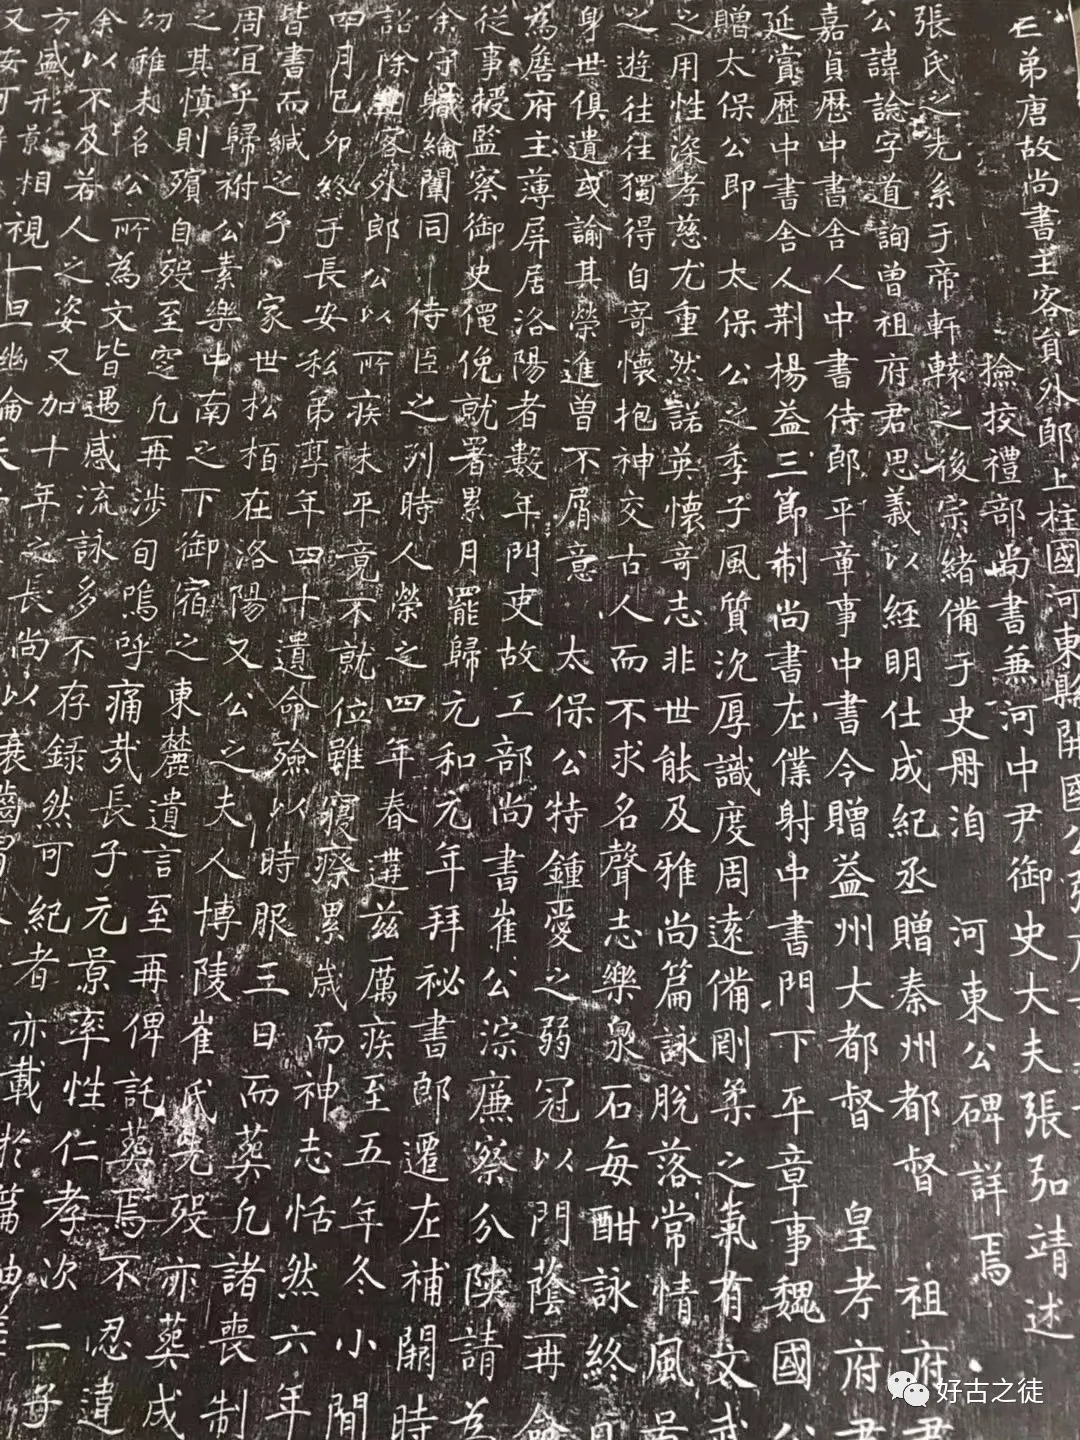 亡弟唐故尚書主客員外郎上柱國河東縣開國公張
撿挍禮部尚書兼河中尹御史大夫張弘靖述
張氏之先系于帝軒轅之後宗緒備于史冊洎 河東公碑詳焉
公諱諗字道詢曾祖府君思義以經明仕成紀丞贈秦州都督 祖府君
嘉貞歷中書舍人中書侍郎平章事中書令贈益州大都督 皇考府君
延賞歷中書舍人荊楊益三節制尚書左僕射中書門下平章事魏國公
贈太保公即 太保公之季子風質沉厚識度周遠備剛柔之氣有文武
之用性深孝慈尤重然諾英懷奇志非世能及雅尚篇詠脫落常情風
之遊往往獨得自寄懷抱神交古人而不求名聲志樂泉石每酣詠終
身世俱遺或諭其榮進曾不屑意 太保公特鍾愛之弱冠以門蔭再
為詹府主薄屏居洛陽者數年門吏故工部尚書崔公淙廉察分陝請為
從事授監察御史僶俛就署累月罷歸元和元年拜秘書郎遷左補闕時
余守職綸闈同 侍臣之列時人榮之四年春遘茲厲疾至五年冬小間
詔除主客外郎公以所疾未平竟不就位雖寢瘵累歲而神志恬然六年
四月己卯終于長安私弟享年四十遺命殮以時服三日而葬凡諸喪制
皆書而緘之予 家世松栢在洛陽又公之夫人博陵崔氏先歿亦葬
周宜乎歸祔 公素樂中南之下御宿之東麓遺言至再俾託葬焉不忍違
之其慎則殯自歿至窆凡再涉旬嗚呼痛哉長子元景率性仁孝次二子
幼稚未名公所為文皆遇感流詠多不存録然可紀者亦載於篇
余以不及若人之姿又加十年之長尚以衰
方盛形影相視一旦幽淪